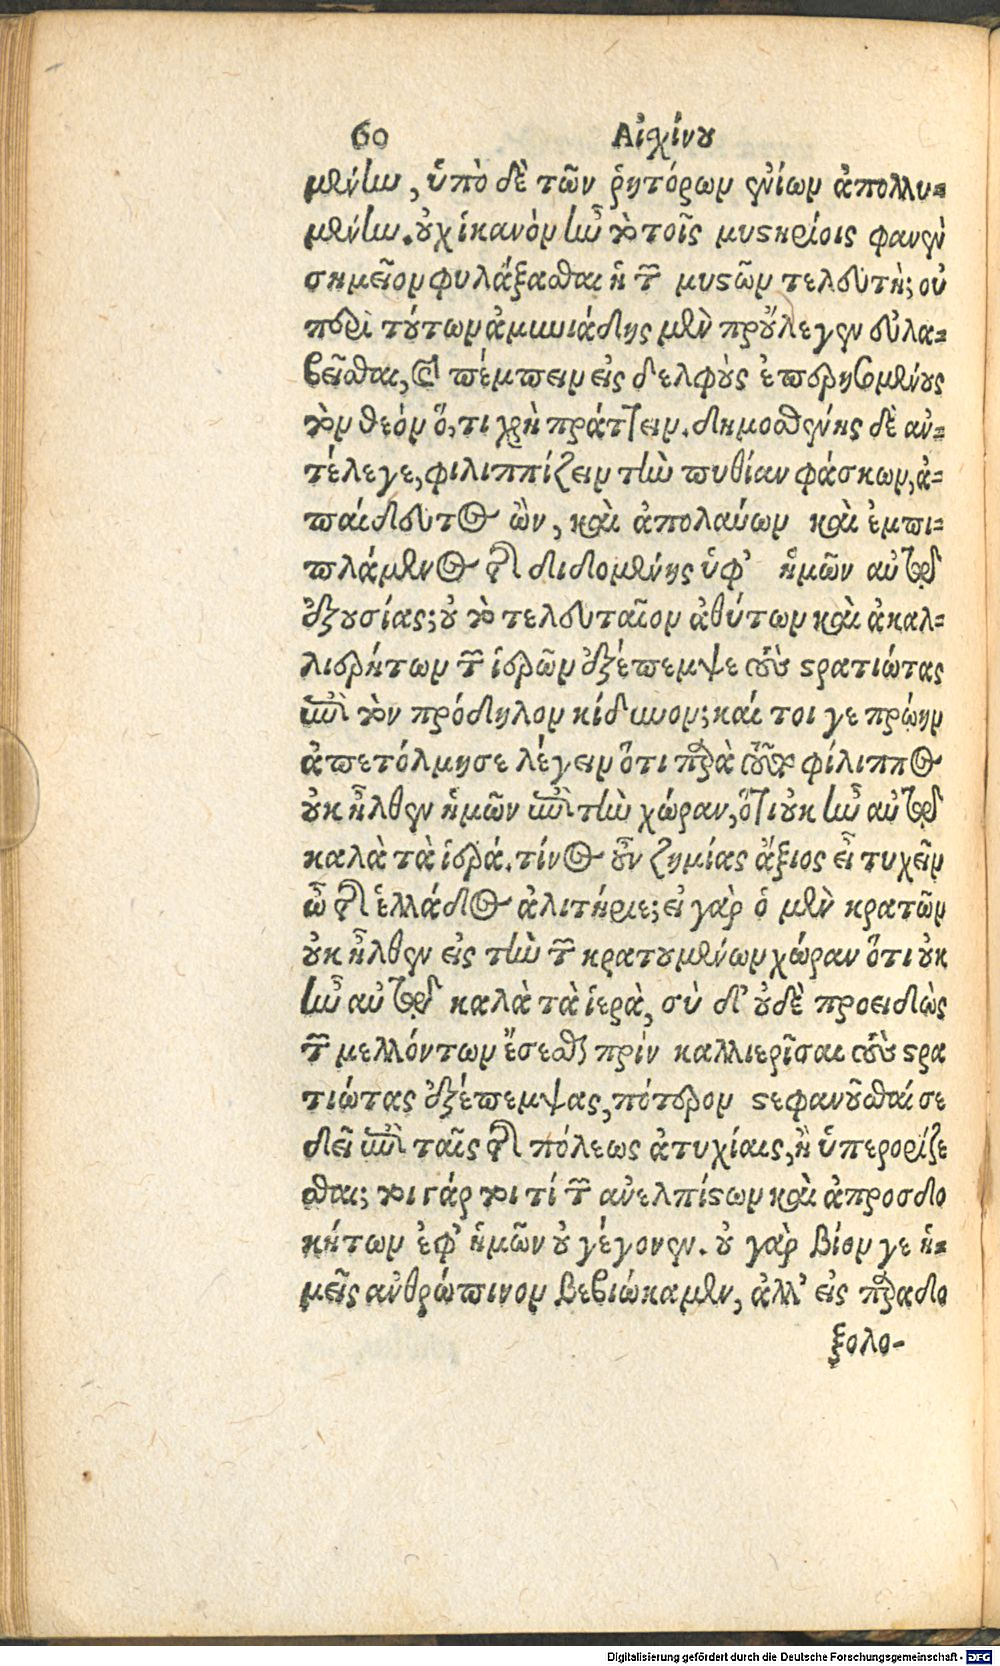 60 Αἰσχίνου
μένην, ὑπὸ δὲ τῶν ῥητόρων ἐνίων ἀπολλυ-
μένην. οὐχ ἱκανὸν ἦν τὸ τοῖς μυστηρίοις φανὲν
σημεῖον φυλάξασθαι ἡ τῶν μυστῶν τελευτὴ; οὐ
περὶ τούτων ἀμυνιάδης μὲν προὔλεγεν εὐλα-
βεῖσθαι, καὶ πέμπειν εἰς δελφοὺς ἐπερησομένους
τὸν θεὸν ὅ,τι χρὴ πράττειν. δημοσθένης δὲ ἀν-
τέλεγε, φιλιππίζειν τὴν πυθίαν φάσκων, ἀ-
παίδευτος ὢν, καὶ ἀπολαύων καὶ ἐμπι-
πλάμενος τῆς διδομένης ὑφ' ἡμῶν αὐτῷ
ἐξουσίας; οὐ τὸ τελευταῖον ἀθύτων καὶ ἀκαλ-
λιερήτων τῶν ἱερῶν ἐξέπεμψε τοὺς στρατιώτας
ἐπὶ τὸν πρόδηλον κίνδυνον; καί τοι γε πρώην
ἀπετόλμησε λέγειν ὅτι παρὰ τοῦτο φίλιππος
οὐκ ἦλθεν ἡμῶν ἐπὶ τὴν χώραν, ὅτι οὐκ ἦν αὐτῷ
καλὰ τὰ ἱερά. τίνος οὖν ζημίας ἄξιος εἶ τυχεῖν
ὦ τῆς ἑλλάδος ἀλιτήριε; εἰ γὰρ ὁ μὲν κρατῶν
οὐκ ἦλθεν εἰς τὴν τῶν κρατουμένων χώραν ὅτι οὐκ
ἦν αὐτῷ καλὰ τὰ ἱερὰ, σὺ δ' οὐδὲν προειδὼς
τῶν μελλόντων ἔσεσθαι πρίν καλλιερῖσαι τοὺς στρα
τιώτας ἐξέπεμψας, πότερον στεφανοῦσθαί σε
δεῖ ἐπὶ ταῖς τῆς πόλεως ἀτυχίαις, ἢ ὑπερορίζε
σθαι; τοι γάρ τοι τί τῶν ἀνελπίστων καὶ ἀπροσδο
κήτων ἐφ' ἡμῶν οὐ γέγονεν. οὐ γὰρ βίον γε ἡ-
μεῖς ἀνθρώπινον βεβιώκαμεν, ἀλλ' εἰς παραδο
ξολο-
Digitalisierung gefördert durch die Deutsche Forschungsgemeinschaft - DFG